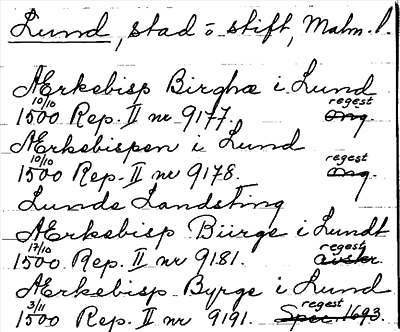 Lund, stad o stift, Malm. l.
Ærkebisp Birghæ i Lund
10/10 1500 Rep. II nr 9177. orig. regest
Ærkebispen i Lund
10/10 1500 Rep. II nr 9178. orig. regest
Lunde Landsting
Ærkebisp Biirge i Lundt
17/10 1500 Rep. II nr 9181. avskr. regest
Ærkebisp Byrge i Lund
3/11 1500 Rep. II nr 9191. Spec. 1693. regest